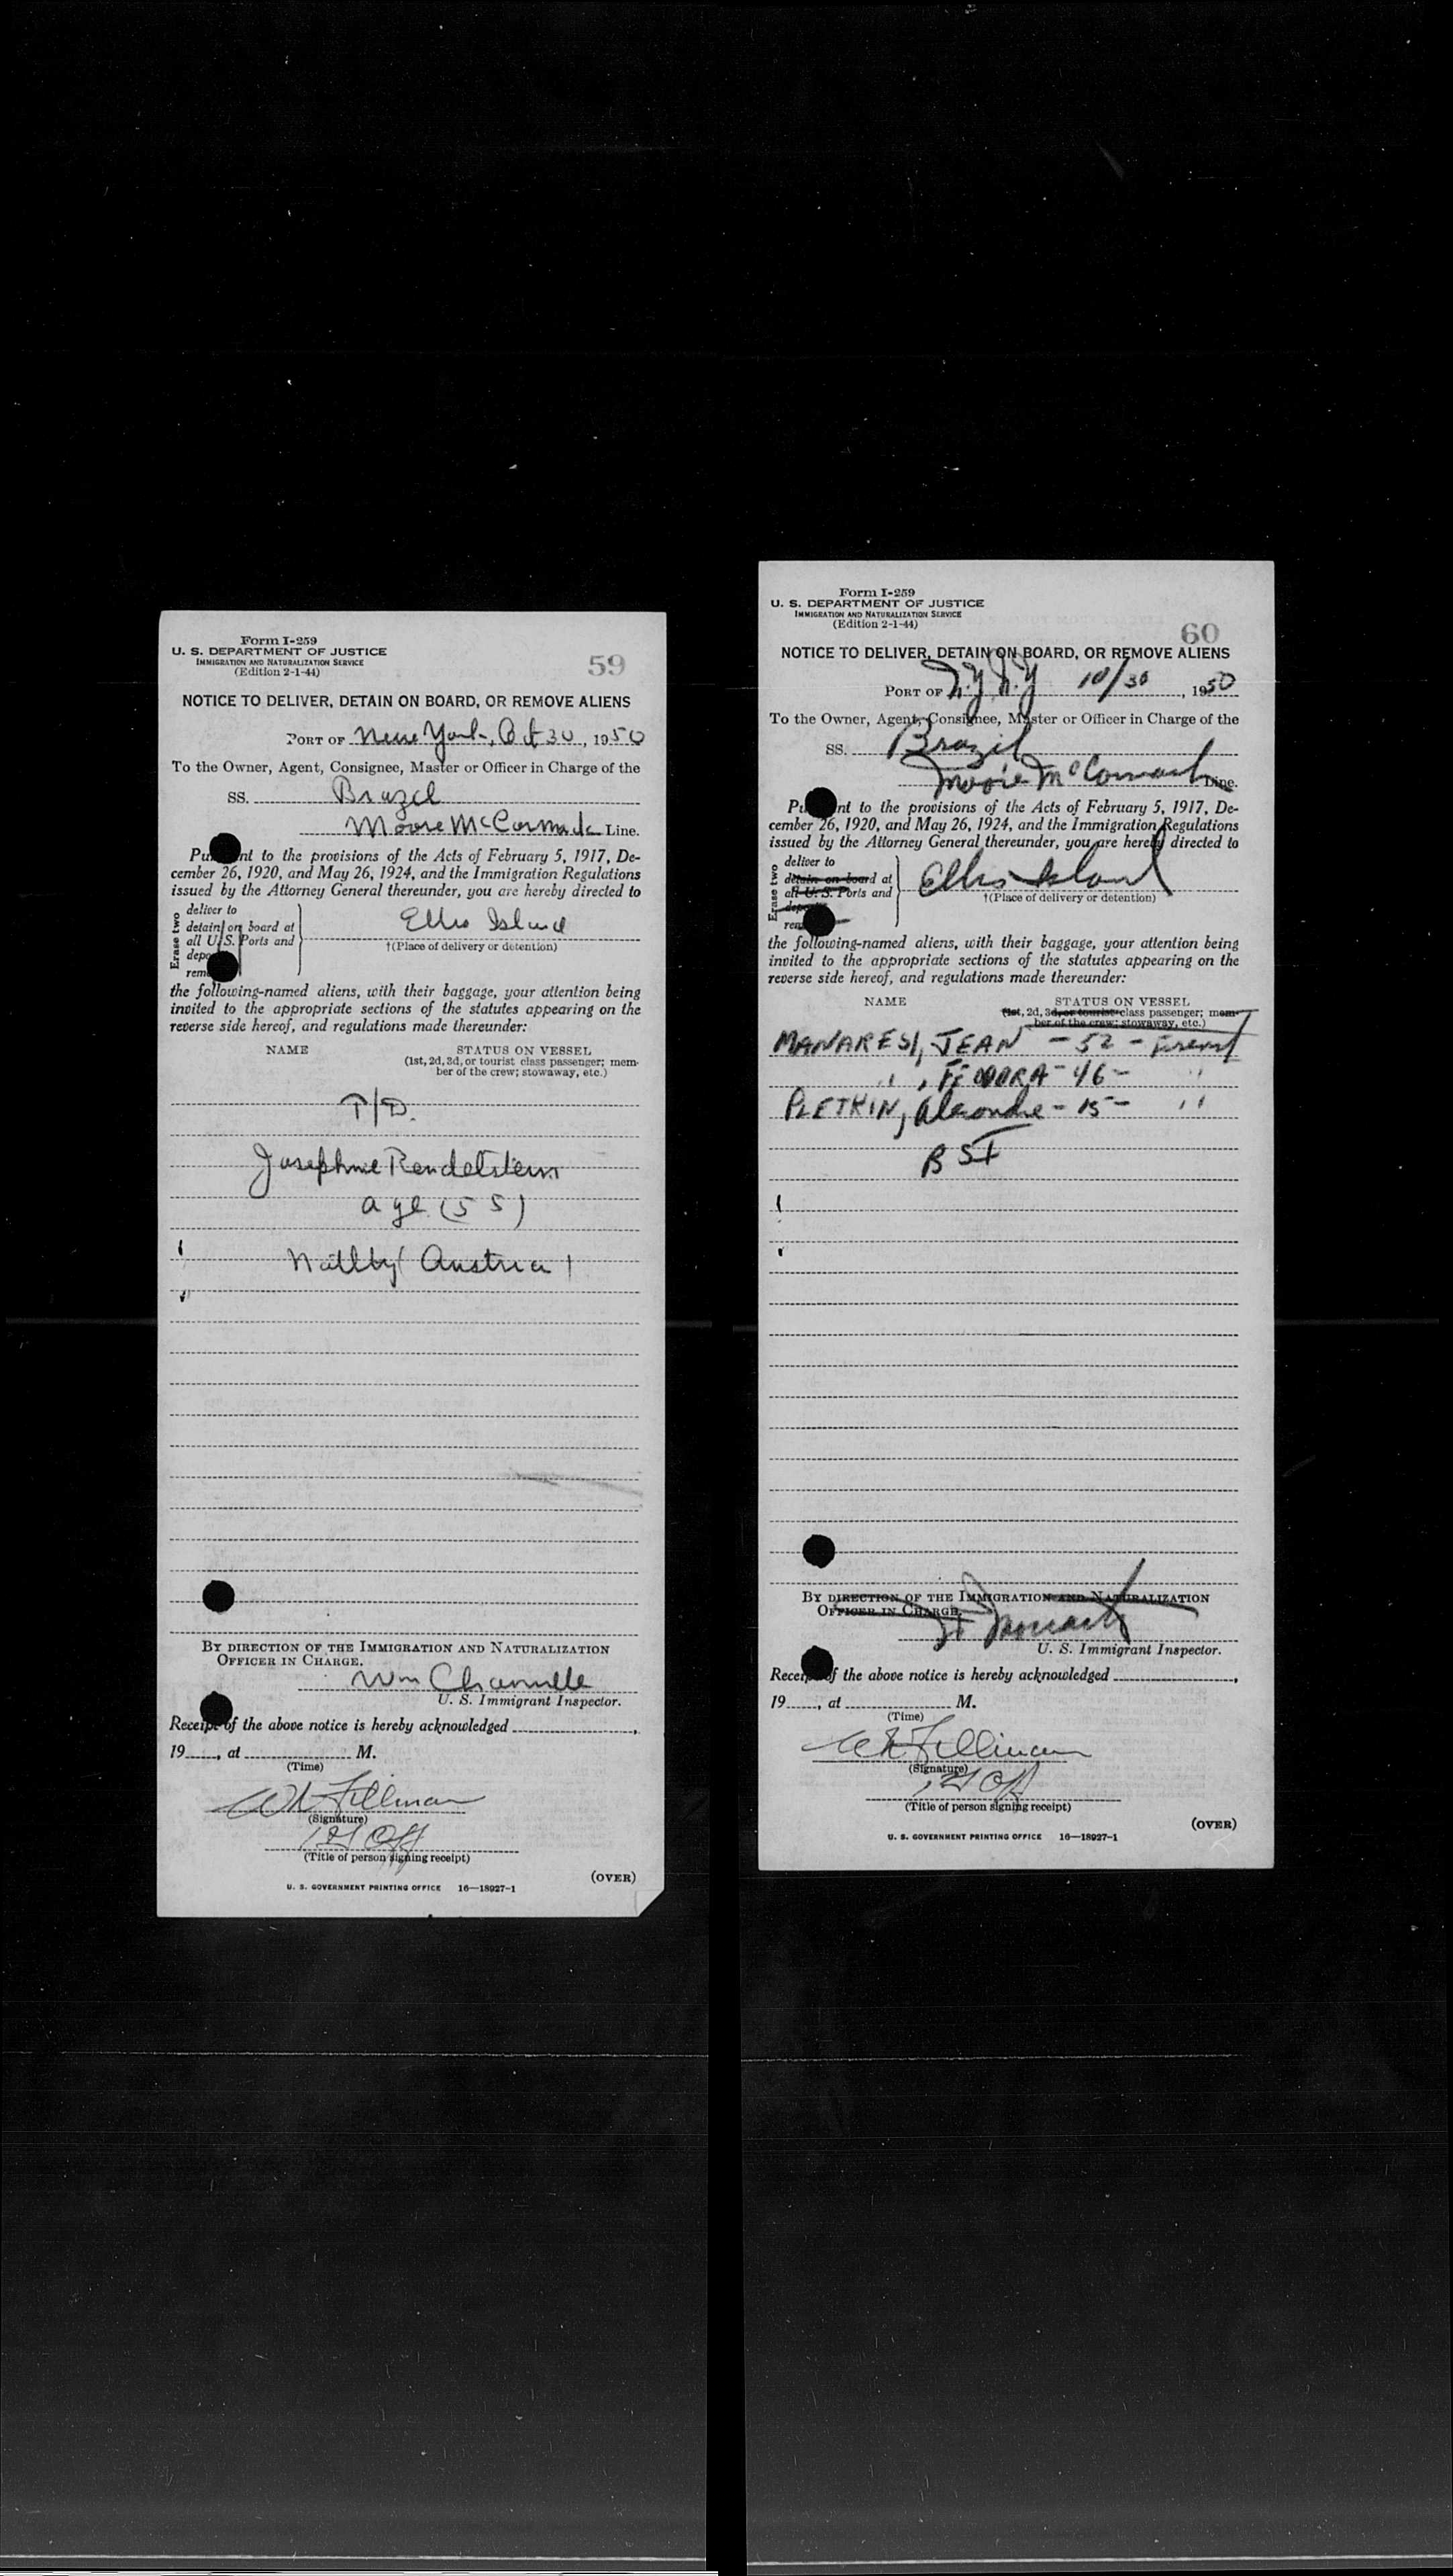 Form I-259
U. S. DEPARTMENT OF JUSTICE
IMMIGRATION AND NATURALIZATION SERVICE
(Edition 2-1-44)
59
NOTICE TO DELIVER, DETAIN ON BOARD, OR REMOVE ALIENS
PORT OF New York, Oct 30, 1950
To the Owner, Agent, Consignee, Master or Officer in Charge of the
SS. Brazil
Moore McCormack Line.
Pu nt to the provisions of the Acts of February 5, 1917, De-
cember 26, 1920, and May 26, 1924, and the Immigration Regulations
issued by the Attorney General thereunder, you are hereby directed to
Erase two
deliver to
detain on board at
all U. S. Ports and
depo
rem
Ellis Island
†(Place of delivery or detention)
the following-named aliens, with their baggage, your attention being
invited to the appropriate sections of the statutes appearing on the
reverse side hereof, and regulations made thereunder:
NAME STATUS ON VESSEL
(1st, 2d, 3d, or tourist class passenger; mem-
ber of the crew; stowaway, etc.)
T/D.
Josephine
age (55)
Austria
BY DIRECTION OF THE IMMIGRATION AND NATURALIZATION
OFFICER IN CHARGE.
Wm
U. S. Immigrant Inspector.
Receipt of the above notice is hereby acknowledged
19 , at M.
(Time)
Fillman
(Signature)
1st Off
(Title of person signing receipt)
(OVER)
U. S. GOVERNMENT PRINTING OFFICE 16—18027-1
Form I-259
U. S. DEPARTMENT OF JUSTICE
IMMIGRATION AND NATURALIZATION SERVICE
(Edition 2-1-44)
60
NOTICE TO DELIVER, DETAIN ON BOARD, OR REMOVE ALIENS
PORT OF N.Y. N.Y 10/30, 1950
To the Owner, Agent, Consignee, Master or Officer in Charge of the
SS. Brazil
Moore McCormack Line.
Pu nt to the provisions of the Acts of February 5, 1917, De-
cember 26, 1920, and May 26, 1924, and the Immigration Regulations
issued by the Attorney General thereunder, you are hereby directed to
Erase two
deliver to
detain on board at
all U. S. Ports and
depo
rem
Ellis Island
†(Place of delivery or detention)
the following-named aliens, with their baggage, your attention being
invited to the appropriate sections of the statutes appearing on the
reverse side hereof, and regulations made thereunder:
NAME STATUS ON VESSEL
(1st, 2d, 3d, or tourist class passenger; mem-
ber of the crew; stowaway, etc.)
MANARESI, JEAN - 52 - French
" , FEDORA - 46 - "
PLETKIN, Alexandre - 15 - "
BSI
BY DIRECTION OF THE IMMIGRATION AND NATURALIZATION
OFFICER IN CHARGE.
U. S. Immigrant Inspector.
Receipt of the above notice is hereby acknowledged
19 , at M.
(Time)
Fillman
(Signature)
1st Off
(Title of person signing receipt)
(OVER)
U. S. GOVERNMENT PRINTING OFFICE 16—18027-1